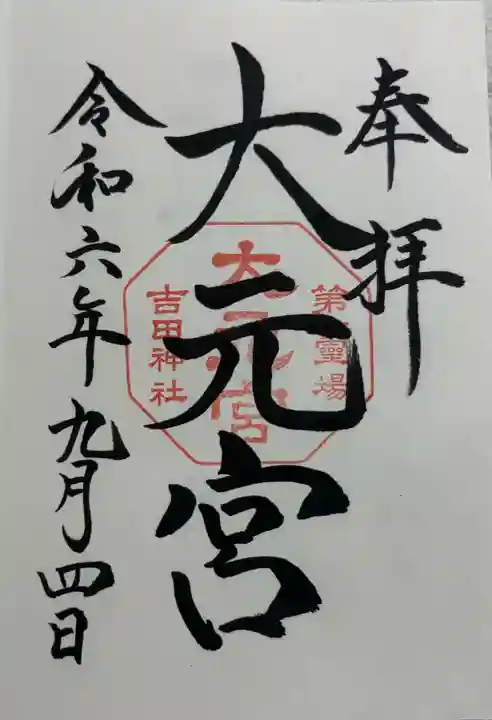 奉拝
大元宮
第一靈場
大元宮
吉田神社
令和六年九月四日